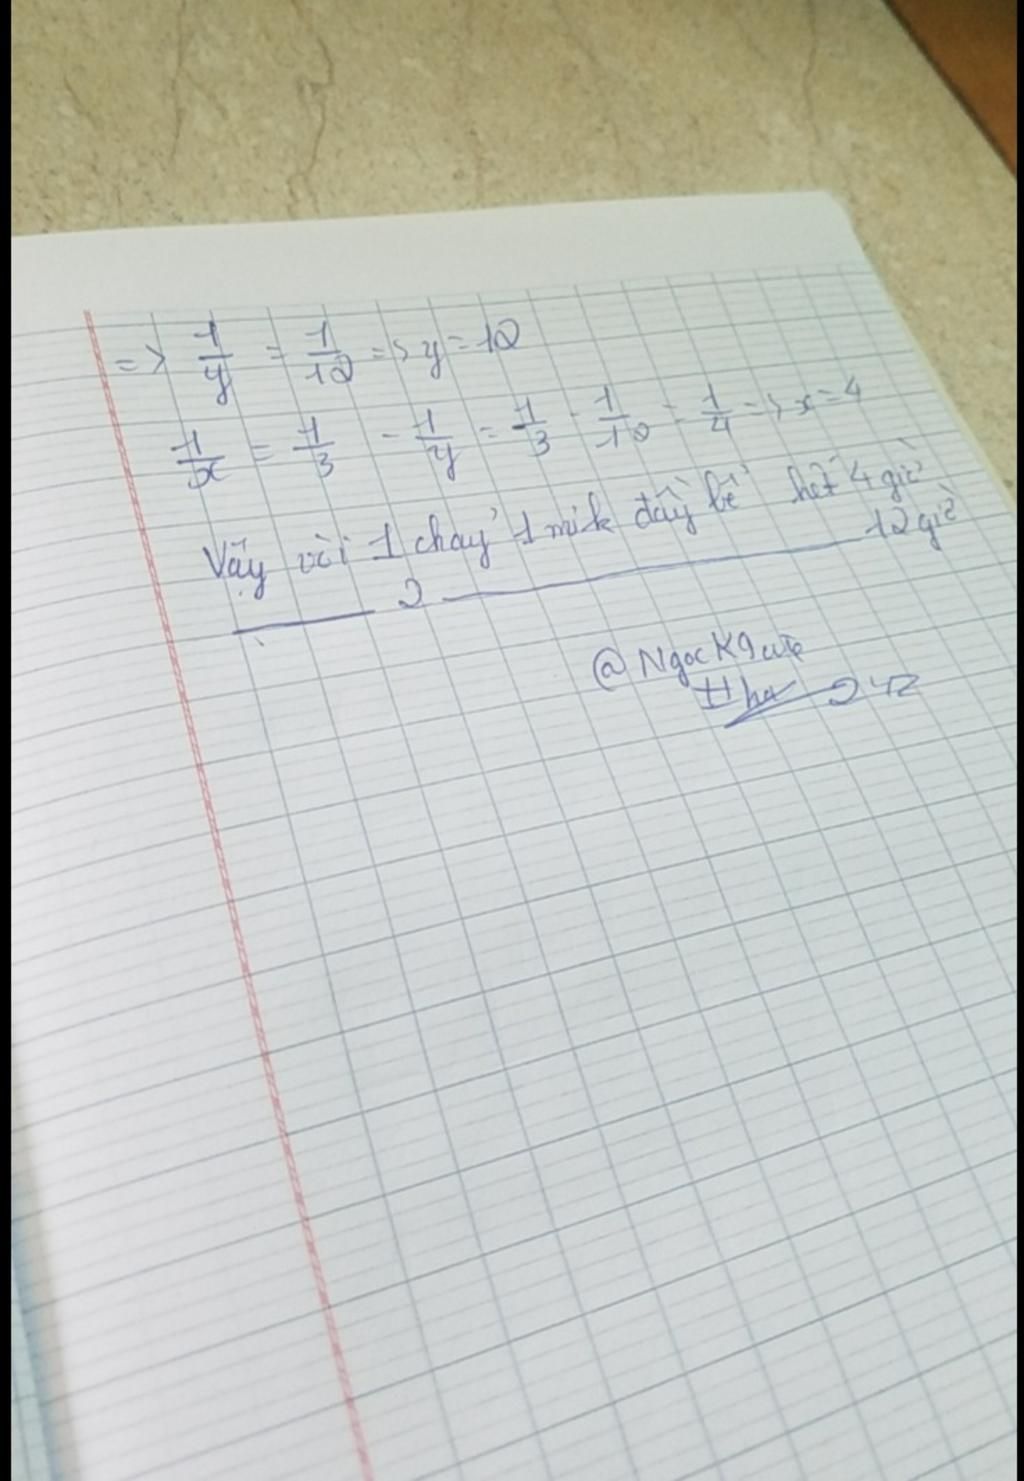 => 1/y = 1/12 => y = 12
1/x = 1/3 - 1/y = 1/3 - 1/12 = 1/4 => x = 4
Vậy vòi 1 chảy 1 mik đầy bể hết 4 giờ
2 12 giờ
@Ngoc K9